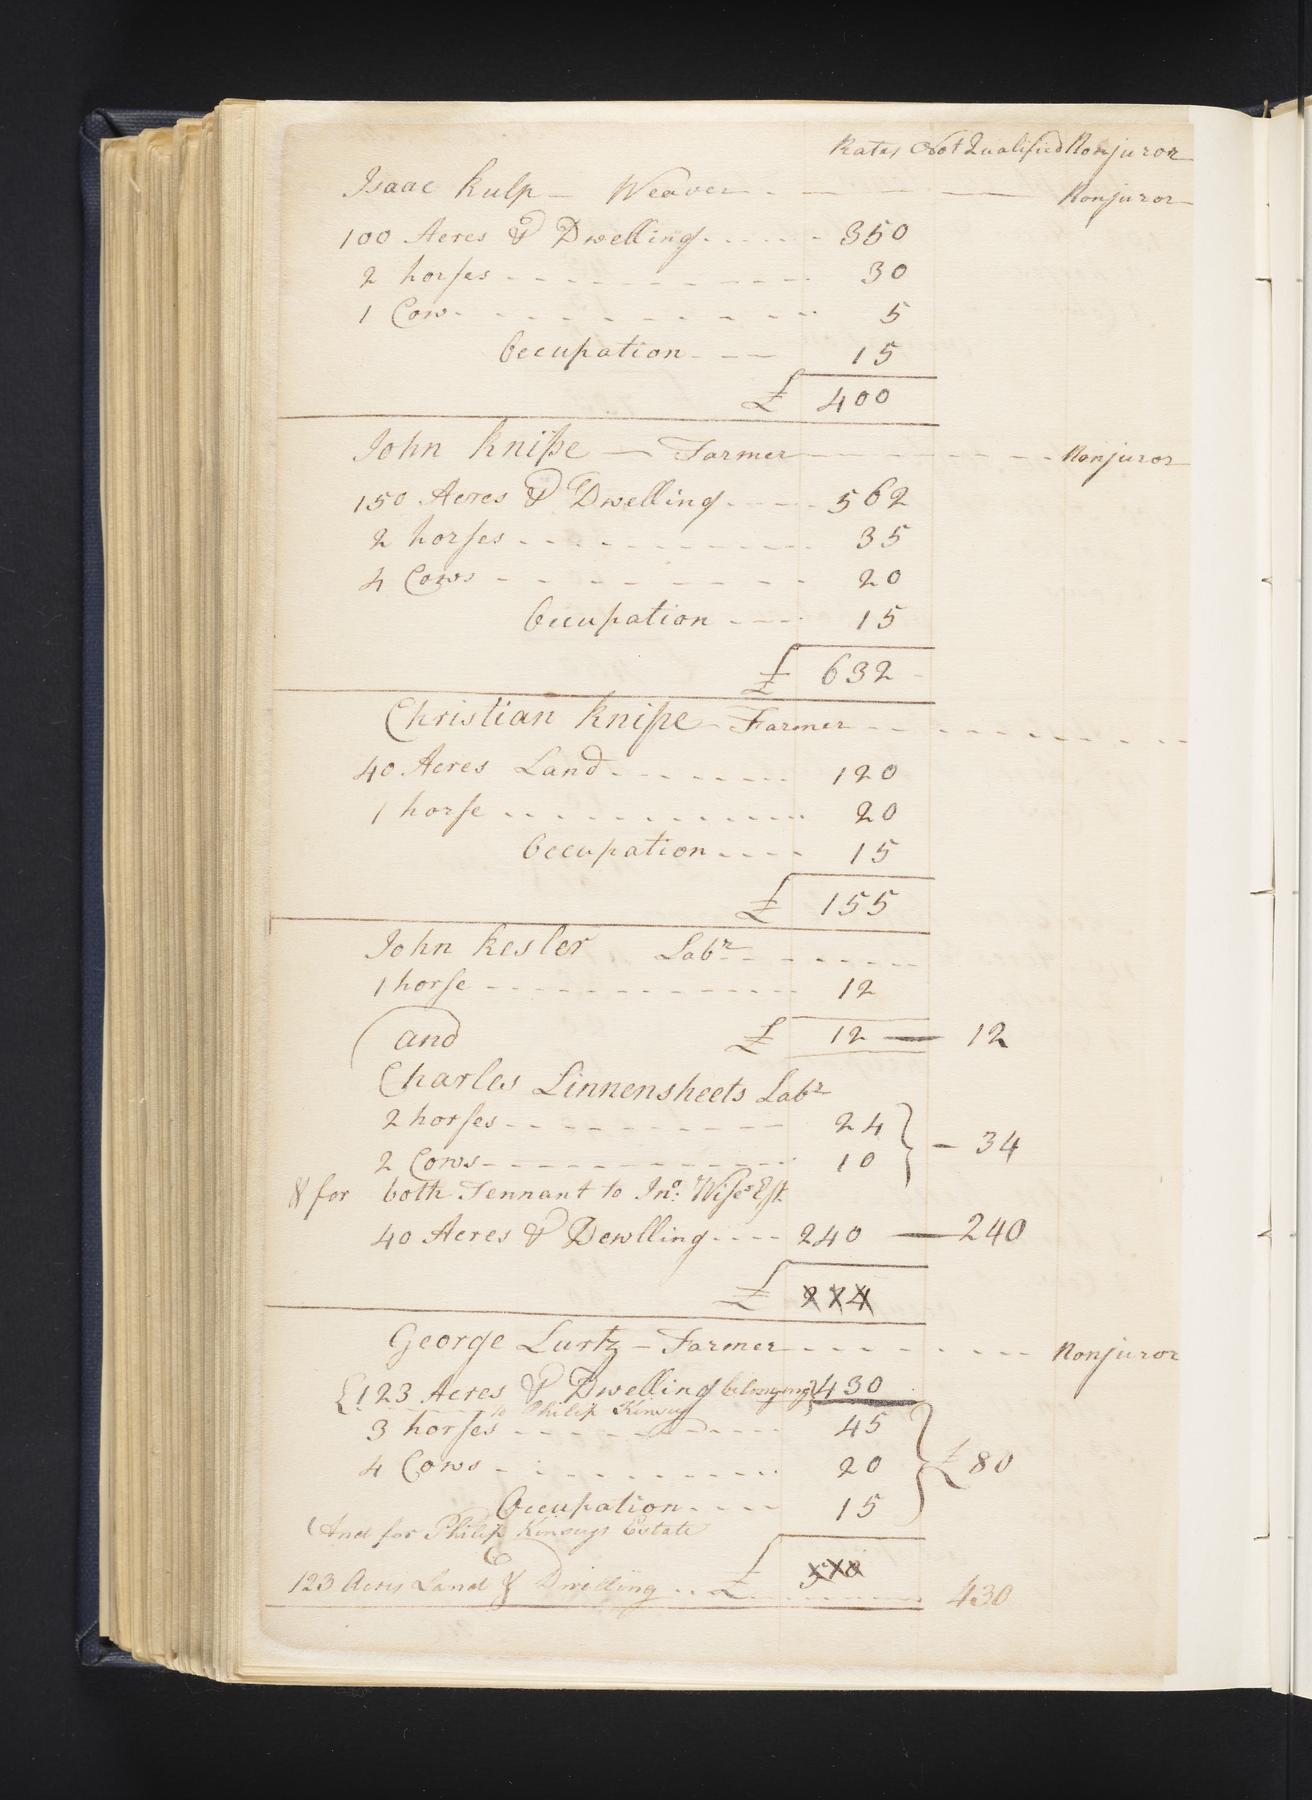 Rates Not Qualified Nonjuror
Isaac Kulp - Weaver - - - - Nonjuror
100 Acres & Dwelling - - - - 350
2 horses - - - - 30
1 Cow - - - - 5
Occupation - - - 15
£ 400
John Knipe - Farmer - - - - Nonjuror
150 Acres & Dwelling - - - - 562
2 horses - - - - 35
4 Cows - - - - 20
Occupation - - - 15
£ 632
Christian Knipe - Farmer - - - -
40 Acres Land - - - - 120
1 horse - - - - 20
Occupation - - - - 15
£ 155
John Kesler Labr - - - -
1 horse - - - - 12
and £ 12 — 12
Charles Linnensheets Labr
2 horses - - - - 24
2 Cows - - - - 10 } - 34
& for both Tennant to Jno: Wise's Est.
40 Acres & Dewlling - - - - 240 — 240
£ 274
George Lurtz - Farmer - - - - Nonjuror
{ 123 Acres & Dwelling belonging } 430
to Philip Kinsey
3 horses - - - - 45
4 Cows - - - - 20 } £ 80
Occupation - - - - 15
(And for Philip Kinseys Estate
510
123 Acres Land & Dwelling . . £ - - - - 430